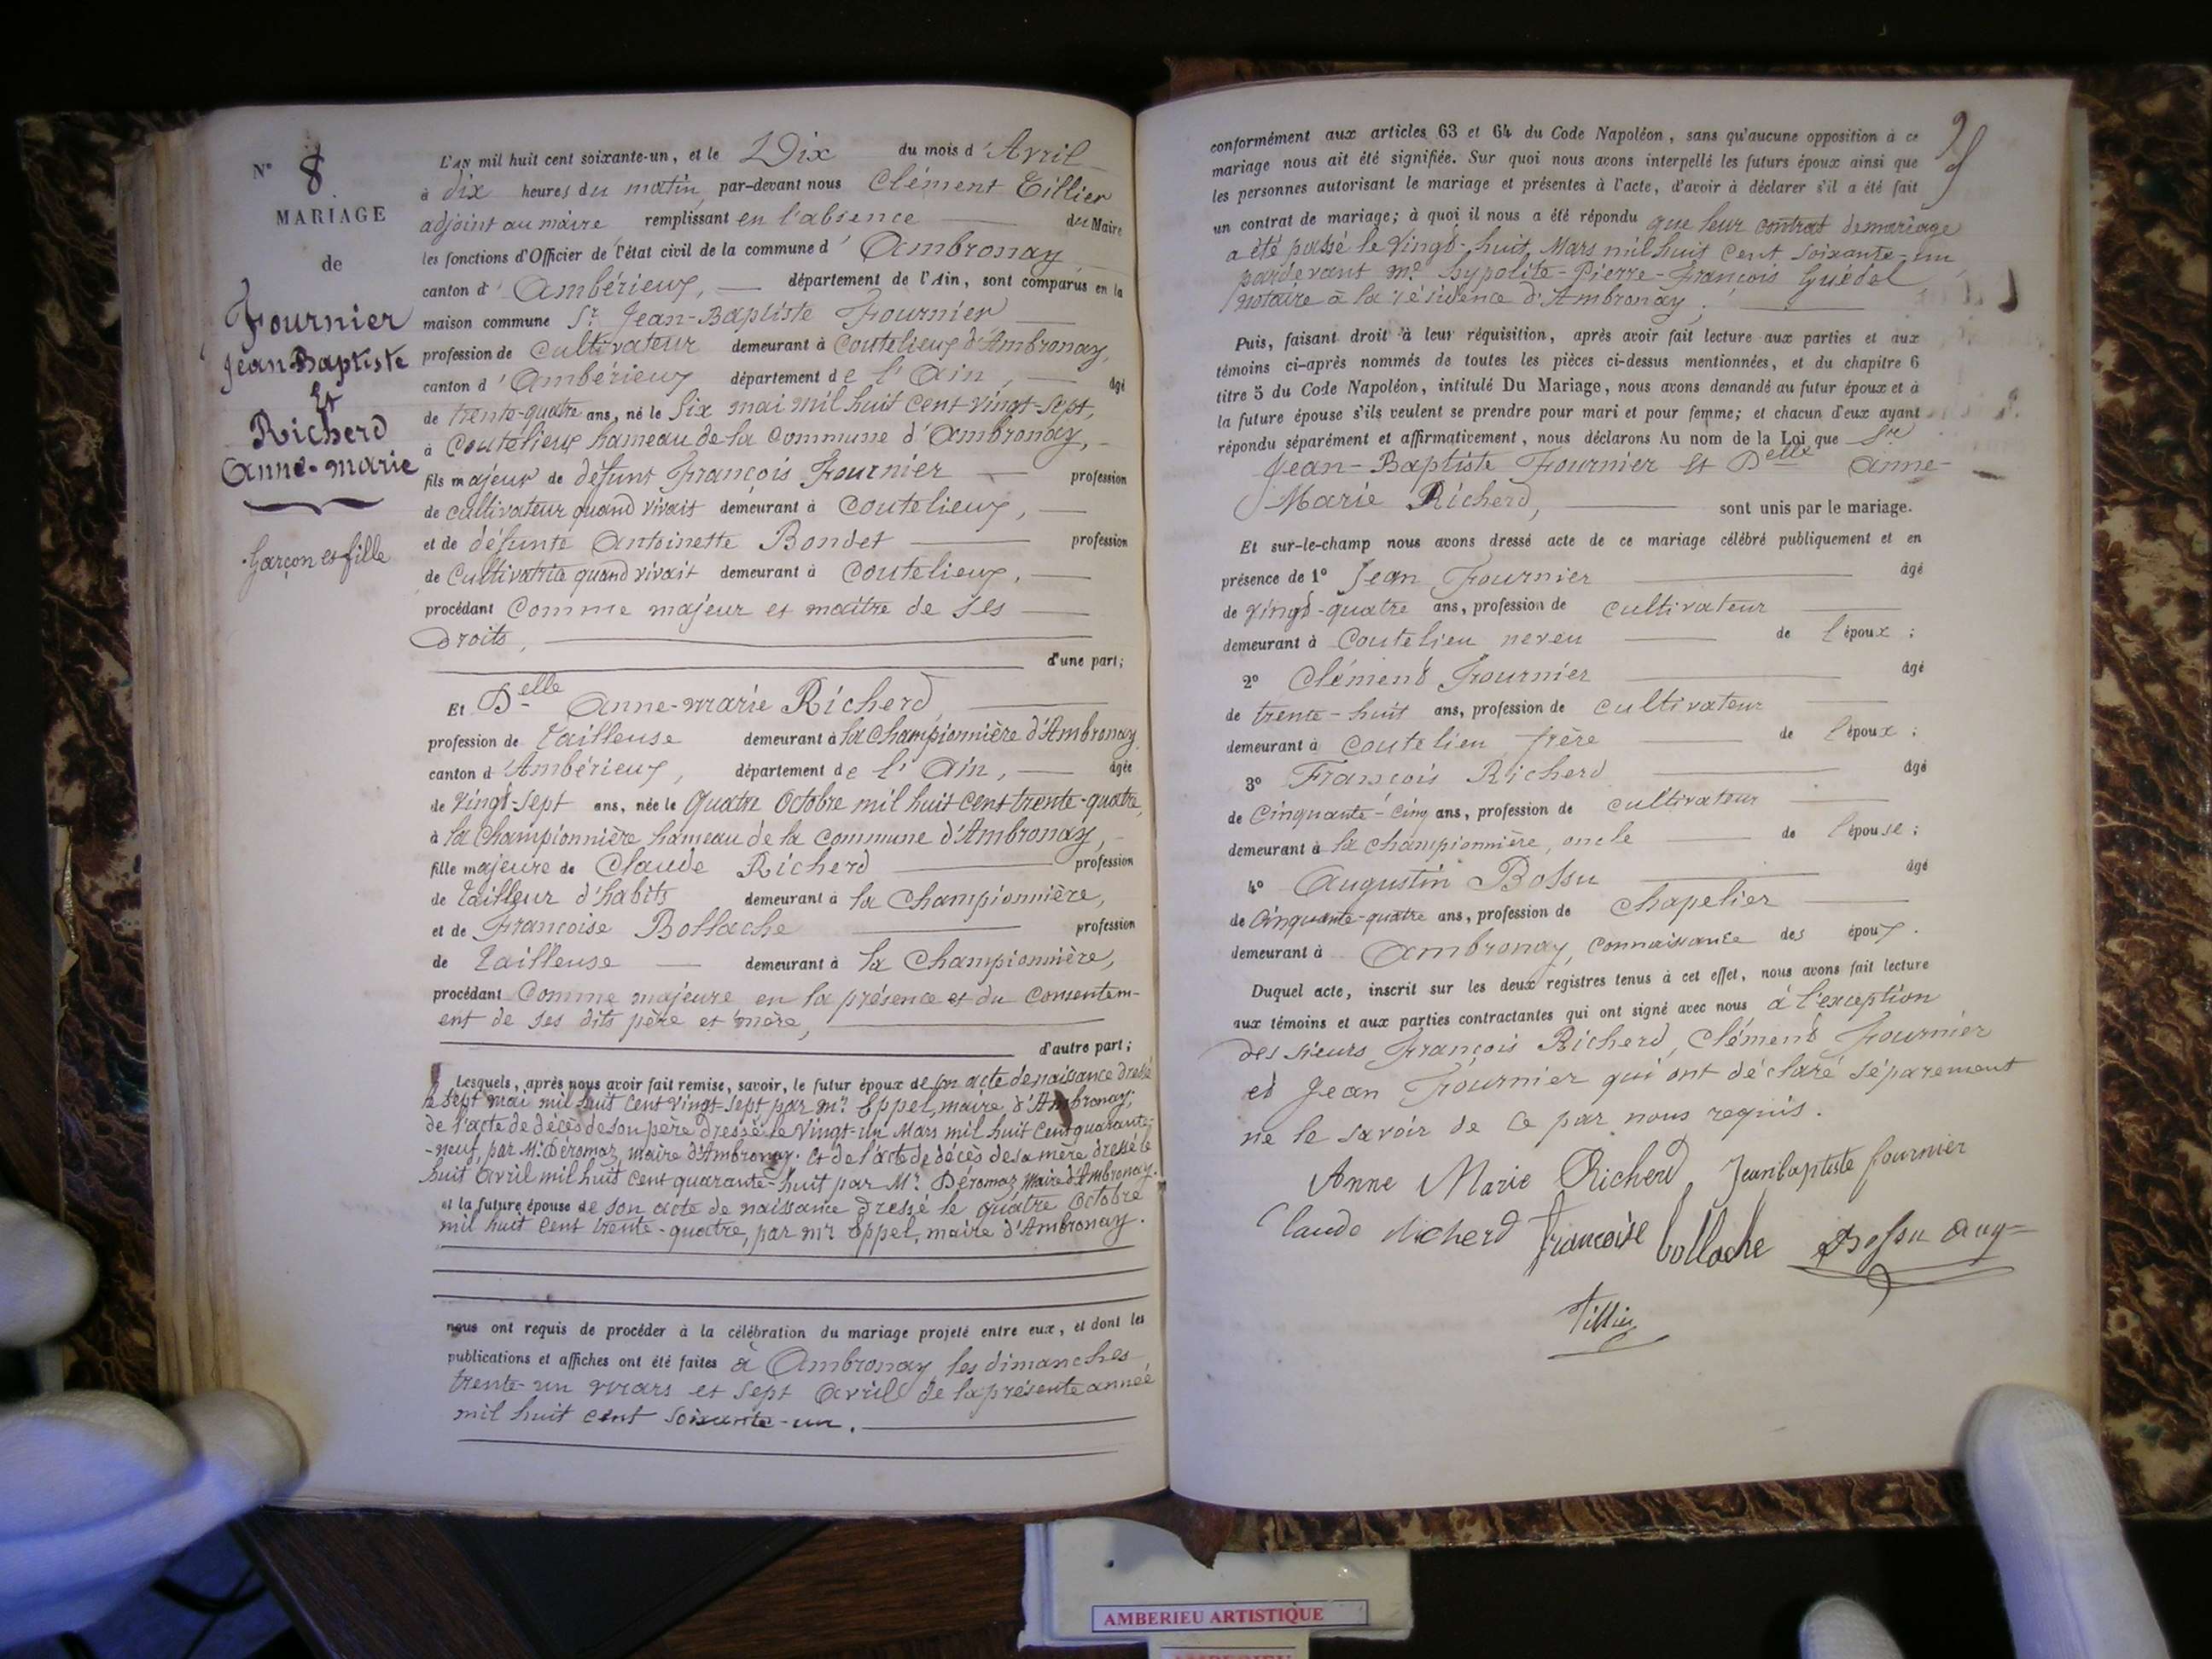 N° 8
MARIAGE
de
Fournier
Jean Baptiste
Et
Richerd
Anne-marie
Garçon et fille
L'AN mil huit cent soixante-un, et le Dix du mois d'Avril
à dix heures du matin, par-devant nous Clément Tillier
adjoint au maire remplissant en l'absence du Maire
les fonctions d'Officier de l'état civil de la commune d'Ambronay
canton d'Ambérieux, département de l'Ain, sont comparus en la
maison commune Sr. Jean-Baptiste Fournier
profession de Cultivateur demeurant à Coutelieux d'Ambronay,
canton d'Ambérieux département de l'Ain, âgé
de trente-quatre ans, né le Six mai mil huit cent vingt-sept,
à Coutelieux hameau de la Commune d'Ambronay,
fils majeur de défunt François Fournier profession
de cultivateur quand vivait demeurant à Coutelieux,
et de défunte Antoinette Bondet profession
de Cultivatrice quand vivait demeurant à Coutelieux,
procédant Comme majeur et maître de ses
Droits,
d'une part;
Et Delle Anne-marie Richerd,
profession de Tailleuse demeurant à la Championnière d'Ambronay,
canton d'Ambérieux, département de l'Ain, âgée
de Vingt-sept ans, née le Quatre Octobre mil huit cent trente-quatre,
à la Championnière hameau de la commune d'Ambronay,
fille majeure de Claude Richerd profession
de Tailleur d'habits demeurant à la Championnière,
et de Françoise Bollache profession
de Tailleuse demeurant à la Championnière,
procédant Comme majeure en la présence et du Consentem-
ent de ses dits père et mère,
d'autre part;
Lesquels, après nous avoir fait remise, savoir, le futur époux de son acte de naissance dressé
le sept mai mil huit cent vingt-sept par Mr. Eppel, maire d'Ambronay;
de l'acte de décès de son père dressé le Vingt-un Mars mil huit cent quarante-
-neuf, par Mr. Déromaz, maire d'Ambronay. et de l'acte de décès de sa mère dressé le
huit Avril mil huit cent quarante-huit par Mr. Déromaz Maire d'Ambronay.
et la future épouse de son acte de naissance dressé le quatre Octobre
mil huit cent trente-quatre, par Mr Eppel, maire d'Ambronay.
nous ont requis de procéder à la célébration du mariage projeté entre eux, et dont les
publications et affiches ont été faites à Ambronay les dimanches
trente-un mars et sept Avril de la présente année
mil huit cent soixante-un.
conformément aux articles 63 et 64 du Code Napoléon, sans qu'aucune opposition à ce
mariage nous ait été signifiée. Sur quoi nous avons interpellé les futurs époux ainsi que
les personnes autorisant le mariage et présentes à l'acte, d'avoir à déclarer s'il a été fait
un contrat de mariage; à quoi il nous a été répondu que leur contrat de mariage
a été passé le vingt-huit Mars mil huit cent soixante-un
pardevant Me. hypolite-Pierre-François Guédel
notaire à la résidence d'Ambronay.
Puis, faisant droit à leur réquisition, après avoir fait lecture aux parties et aux
témoins ci-après nommés de toutes les pièces ci-dessus mentionnées, et du chapitre 6
titre 5 du Code Napoléon, intitulé Du Mariage, nous avons demandé au futur époux et à
la future épouse s'ils veulent se prendre pour mari et pour femme; et chacun d'eux ayant
répondu séparément et affirmativement, nous déclarons Au nom de la Loi que Sr
Jean-Baptiste Fournier Et Delle Anne-
Marie Richerd, sont unis par le mariage.
Et sur-le-champ nous avons dressé acte de ce mariage célébré publiquement et en
présence de 1° Jean Fournier âgé
de vingt-quatre ans, profession de cultivateur
demeurant à Coutelieu neveu de l'époux;
2° Clément Fournier âgé
de trente-huit ans, profession de cultivateur
demeurant à Coutelieu frère de l'époux;
3° François Richerd âgé
de Cinquante-Cinq ans, profession de cultivateur
demeurant à la Championnière, oncle de l'épouse;
4° Augustin Bossu âgé
de Cinquante-quatre ans, profession de Chapelier
demeurant à Ambronay, connaissance des époux.
Duquel acte, inscrit sur les deux registres tenus à cet effet, nous avons fait lecture
aux témoins et aux parties contractantes qui ont signé avec nous à l'exception
des sieurs François Richerd, Clément Fournier
et Jean Fournier qui ont déclaré séparement
ne le savoir de ce par nous requis.
Anne Marie Richerd Jean baptiste fournier
Claude Richerd francoise bollache Bossu Aug
Tillier
AMBERIEU ARTISTIQUE